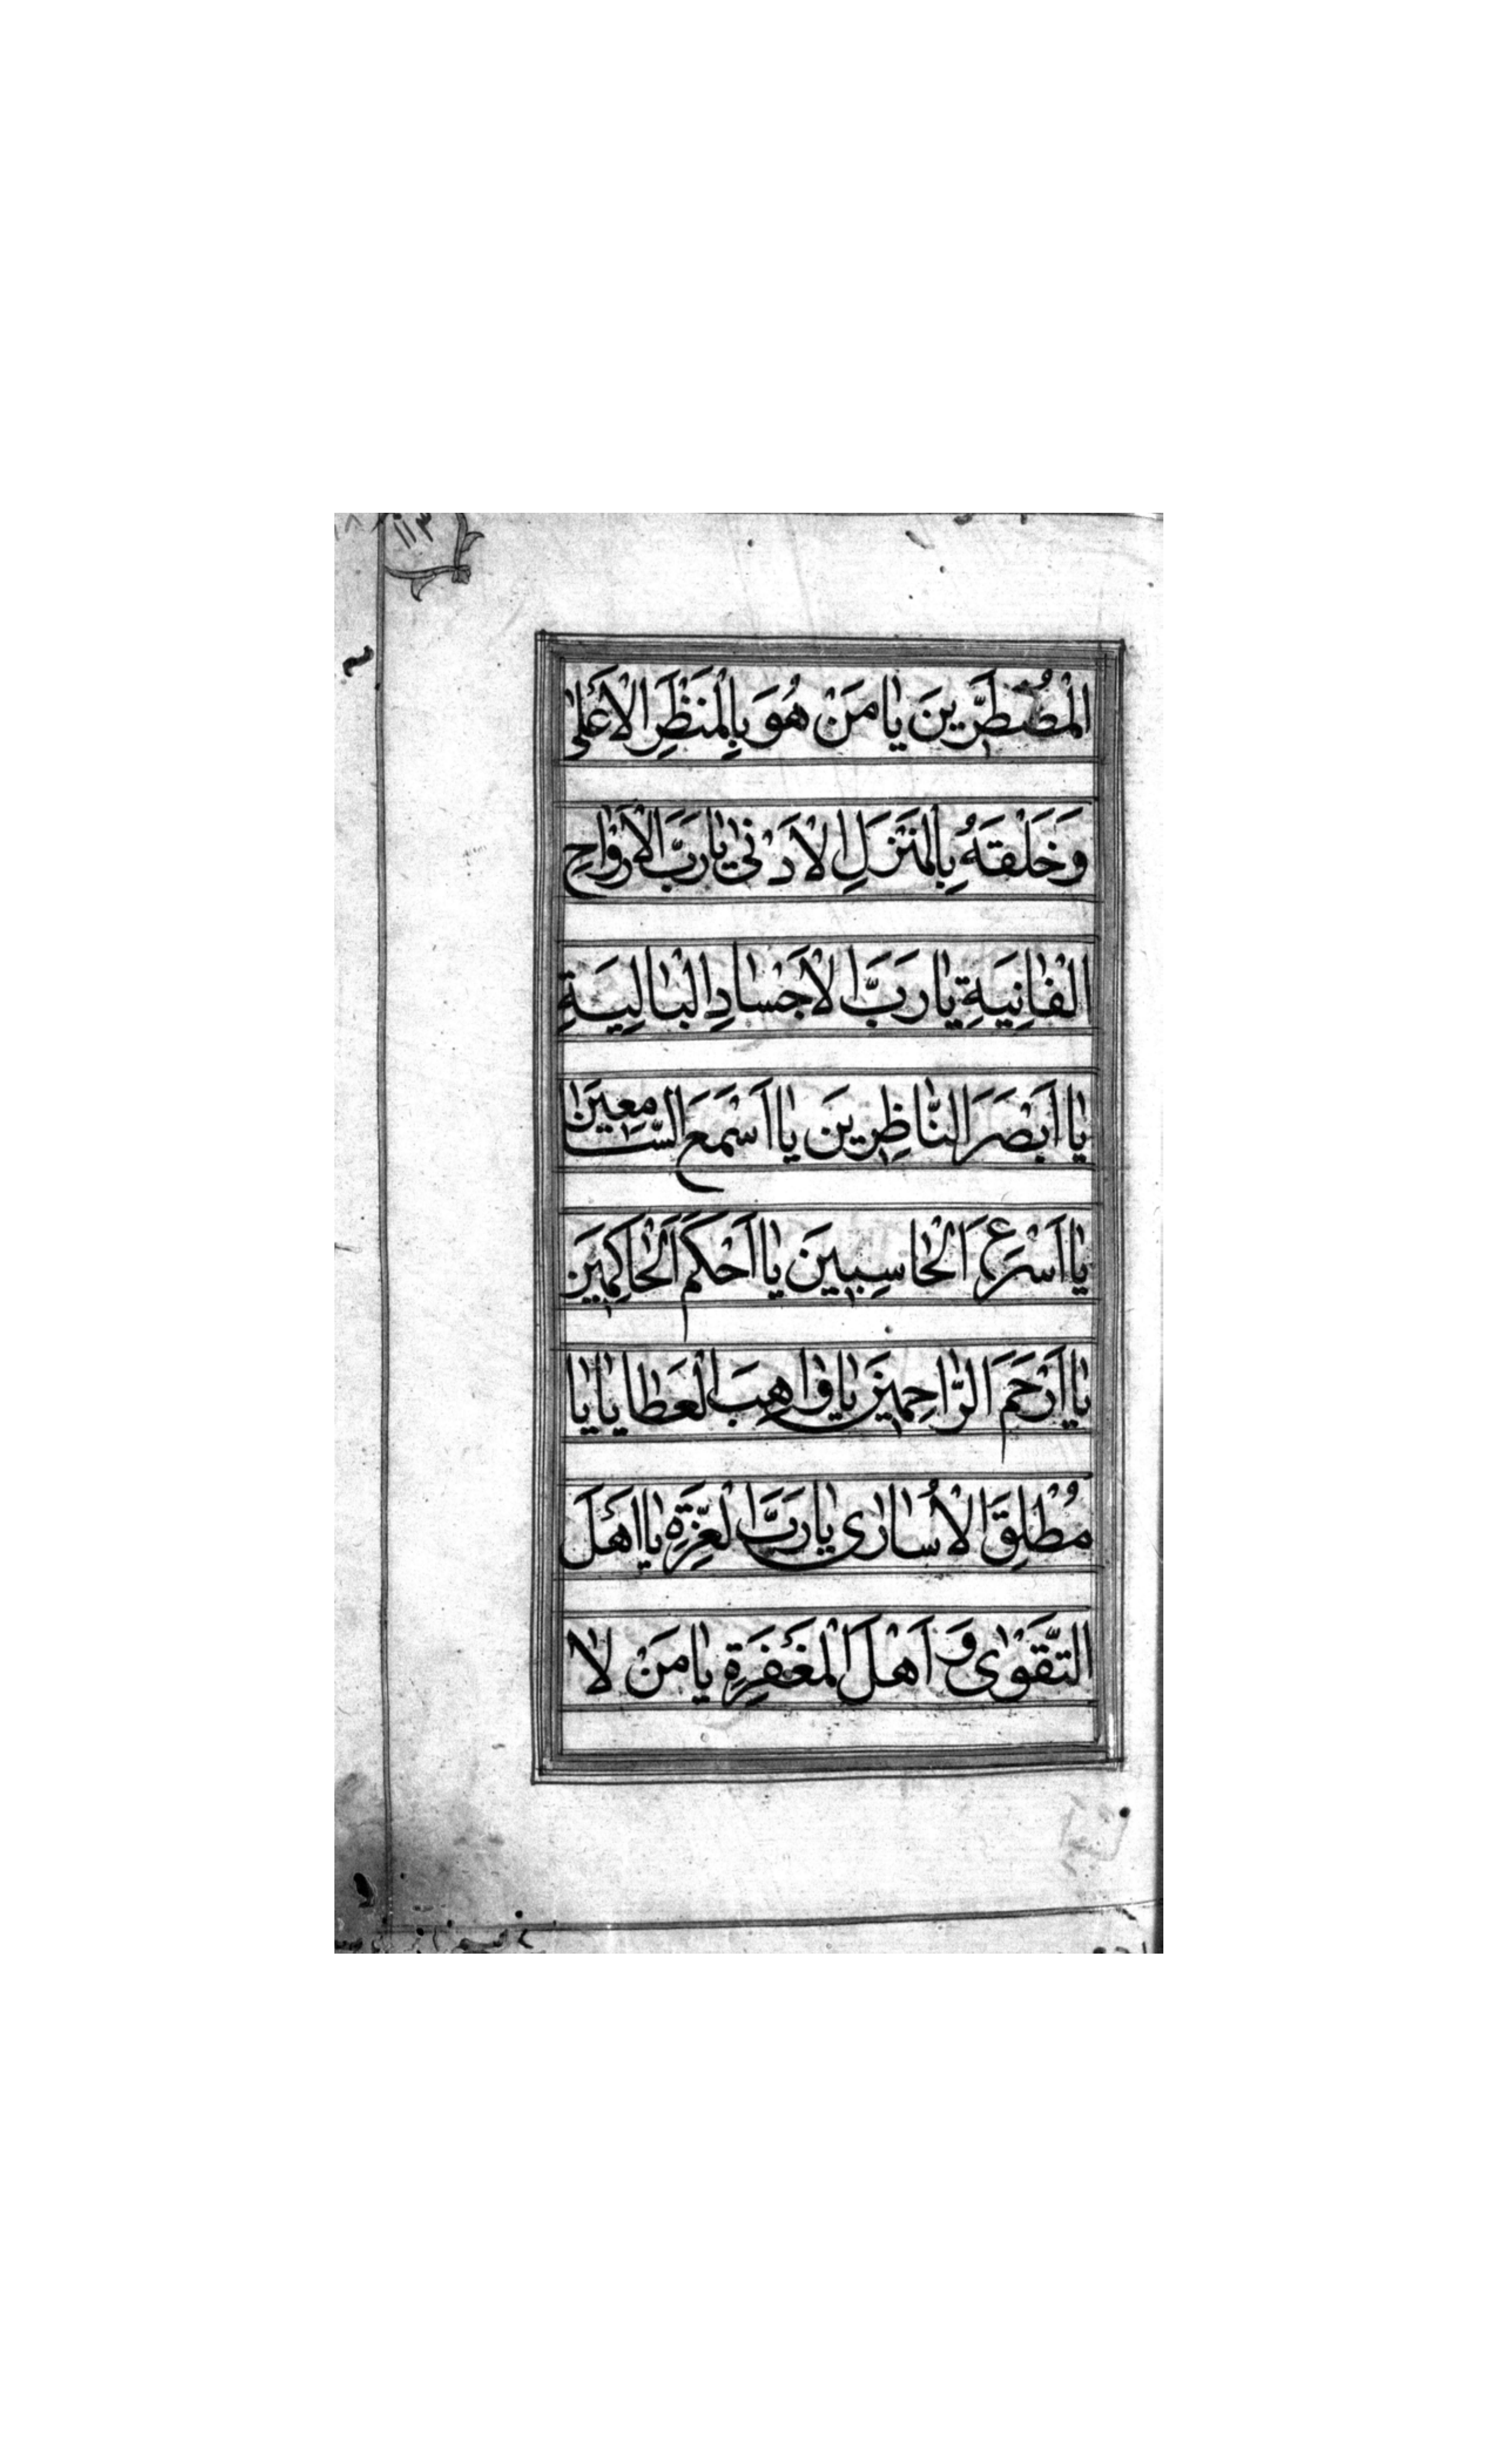 الْمُضْطَرّينَ يٰا مَنْ هُوَ بِالْمَنْظَرِ الْاَعْلىٰ
وَخَلْقَهُ بِالْمَنْزَلِ الْاَدْنىٰ يٰا رَبَّ الْاَرْوٰاحِ
الْفٰانِيَةِ يٰا رَبَّ الْاَجْسٰادِ الْبٰالِيَةِ
يٰا اَبْصَرَ النّٰاظِرينَ يٰا اَسْمَعَ السّٰامِعينَ
يٰا اَسْرَعَ الْحٰاسِبينَ يٰا اَحْكَمَ الْحٰاكِمينَ
يٰا اَرْحَمَ الرّٰاحِمينَ يٰا وٰاهِبَ الْعَطٰايٰا يٰا
مُطْلِقَ الْاُسٰارىٰ يٰا رَبَّ الْعِزَّةِ يٰا اَهْلَ
التَّقْوىٰ وَ اَهْلَ الْمَغْفِرَةِ يٰا مَنْ لٰا